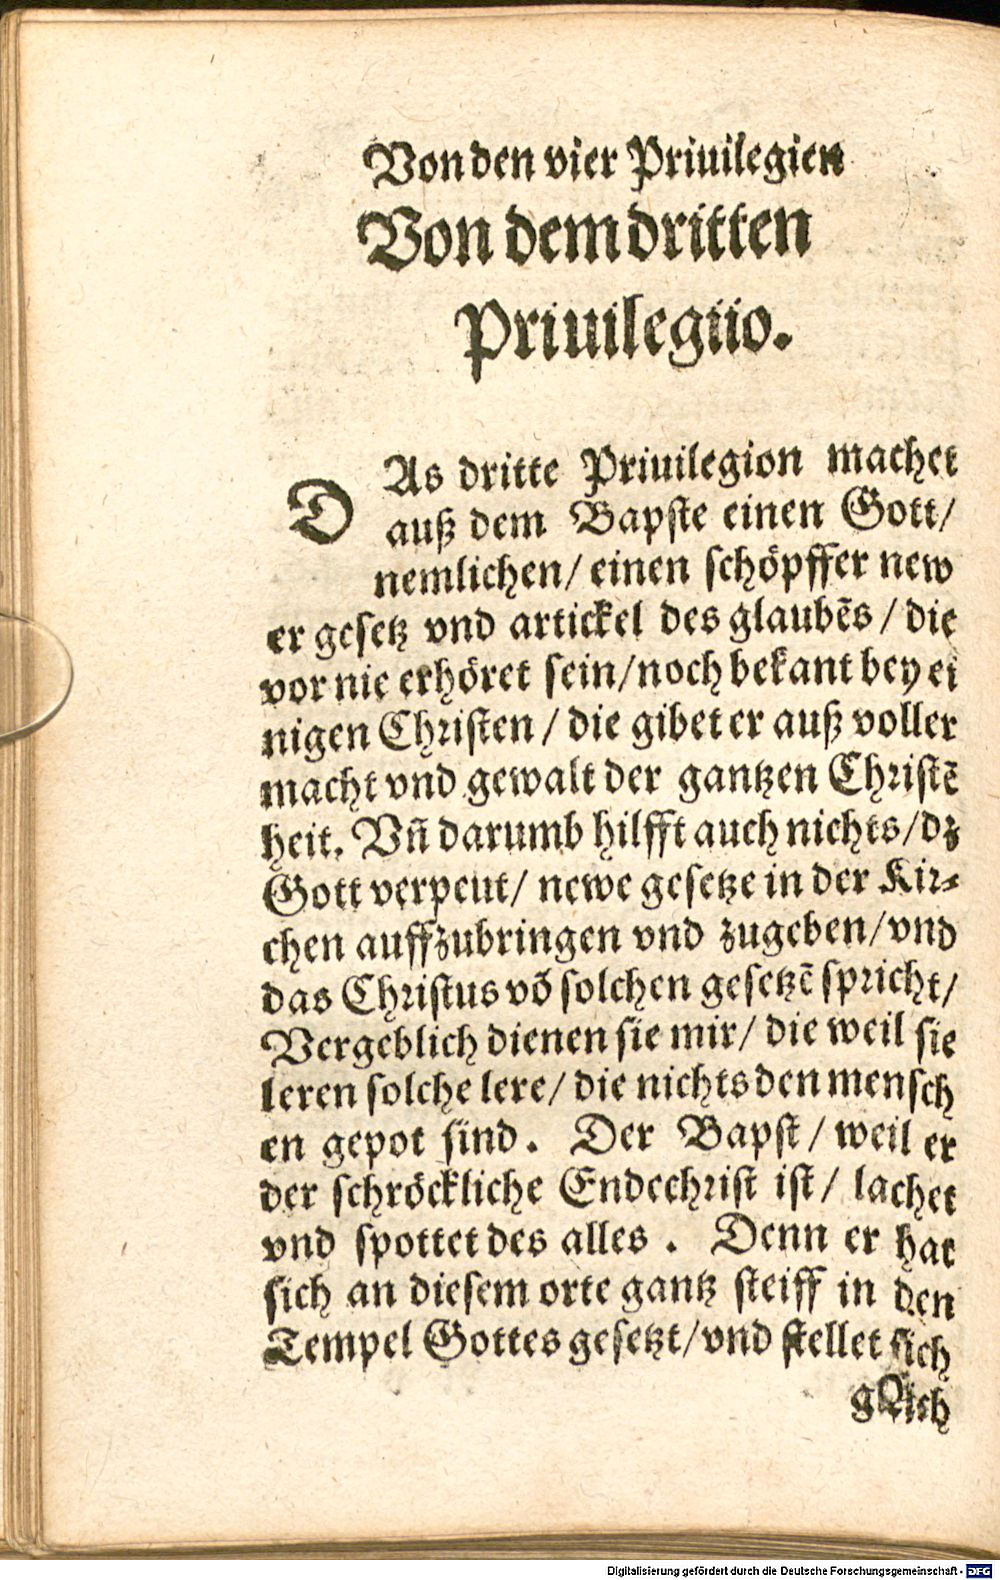 Von den vier Priuilegien
Von dem dritten
Priuilegiio.
DAs dritte Priuilegion machet
auß dem Bapste einen Gott/
nemlichen/ einen schöpffer new
er gesetz vnd artickel des glaubẽs / die
vor nie erhöret sein/ noch bekant bey ei
nigen Christen / die gibet er auß voller
macht vnd gewalt der gantzen Christẽ
heit. Vñ darumb hilfft auch nichts/ dz
Gott verpeut/ newe gesetze in der Kir⸗
chen auffzubringen vnd zugeben/ vnd
das Christus võ solchen gesetzẽ spricht/
Vergeblich dienen sie mir/ die weil sie
leren solche lere/ die nichts den mensch
en gepot sind. Der Bapst/ weil er
der schröckliche Endechrist ist/ lachet
vnd spottet des alles. Denn er hat
sich an diesem orte gantz steiff in den
Tempel Gottes gesetzt/ vnd stellet sich
gleich
Digitalisierung gefördert durch die Deutsche Forschungsgemeinschaft - DFG